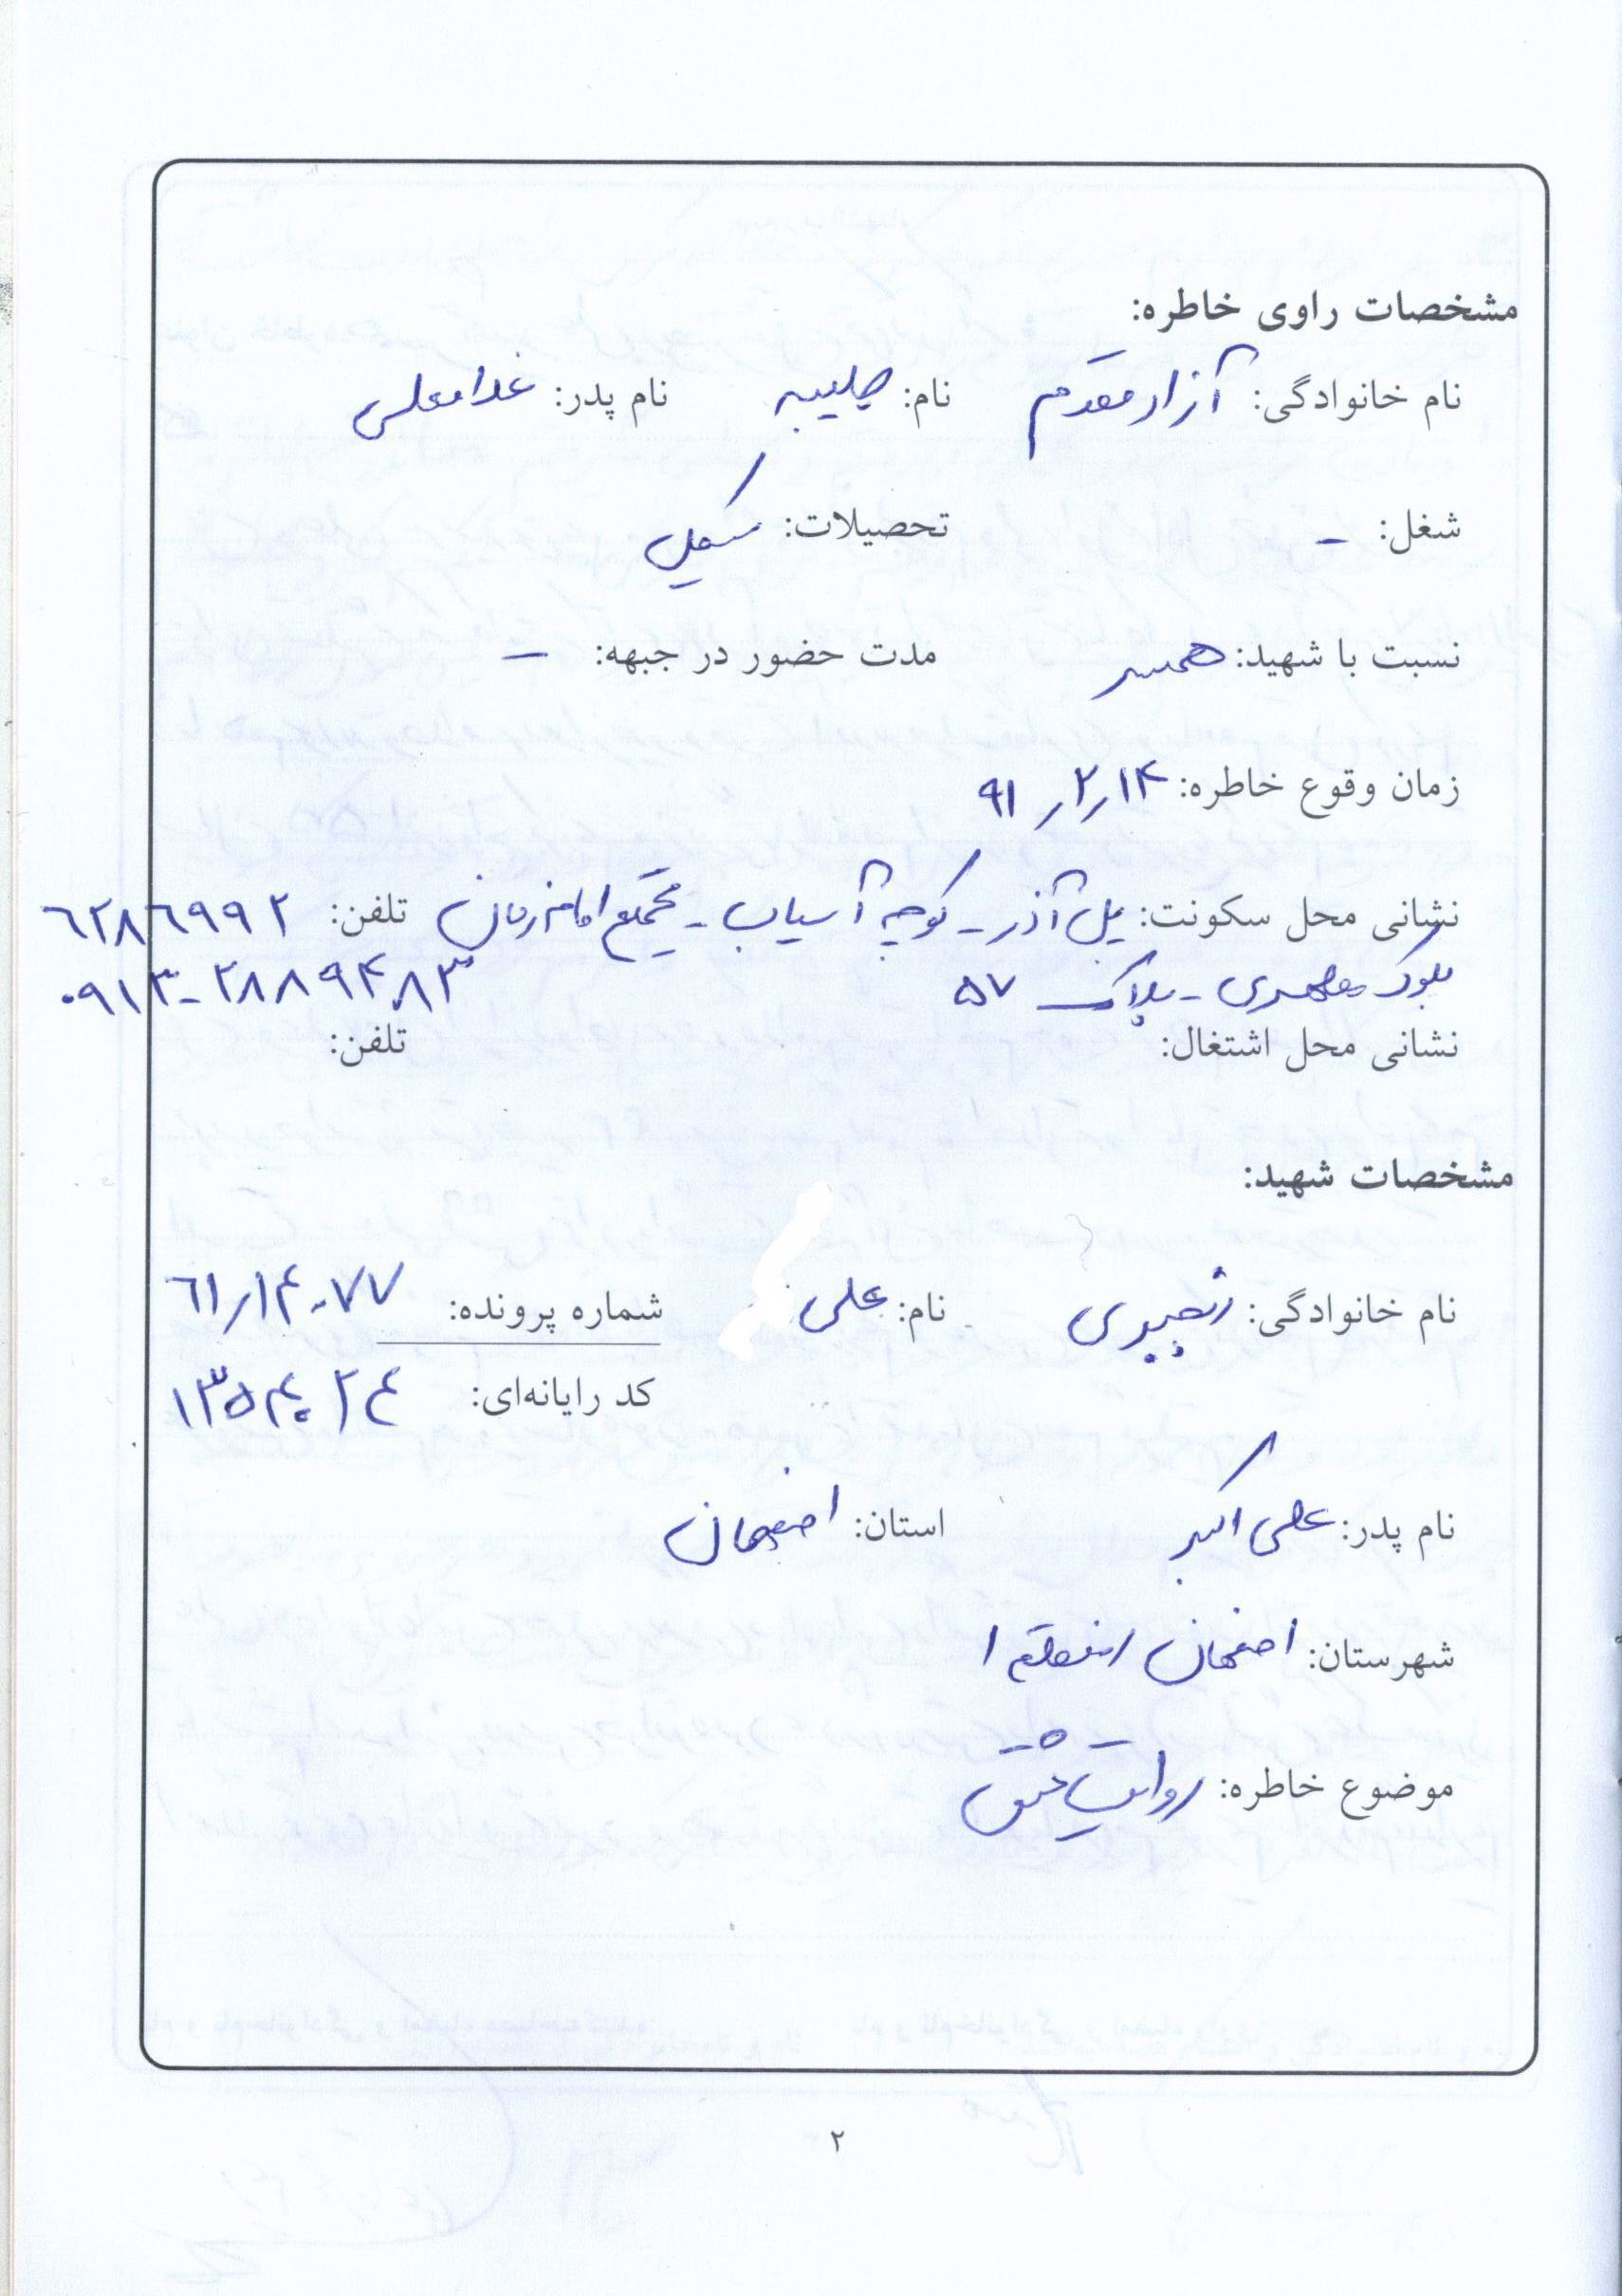 مشخصات راوی خاطره:
نام خانوادگی: آزاد مقدم نام: نام پدر: غلامعلی
شغل: - تحصیلات: سیکل
نسبت با شهید: همسر مدت حضور در جبهه: -
زمان وقوع خاطره: ۹۱/۲/۱۴
نشانی محل سکونت: پل آذر - کوچه آسیاب - مجتمع امام زمان تلفن: ۶۲۸۶۹۹۲
بلوک مطهری - پلاک ۵۷ ۰۹۱۳-۲۸۸۹۴۸۳
نشانی محل اشتغال: تلفن:
مشخصات شهید:
نام خانوادگی: رنجبری نام: علی شماره پرونده: ۶۱/۱۴۰۷۷
کد رایانه‌ای: ۱۳۵۴۰۲۴
نام پدر: علی اکبر استان: اصفهان
شهرستان: اصفهان / منطقه ۱
موضوع خاطره: روایت عشق
۲